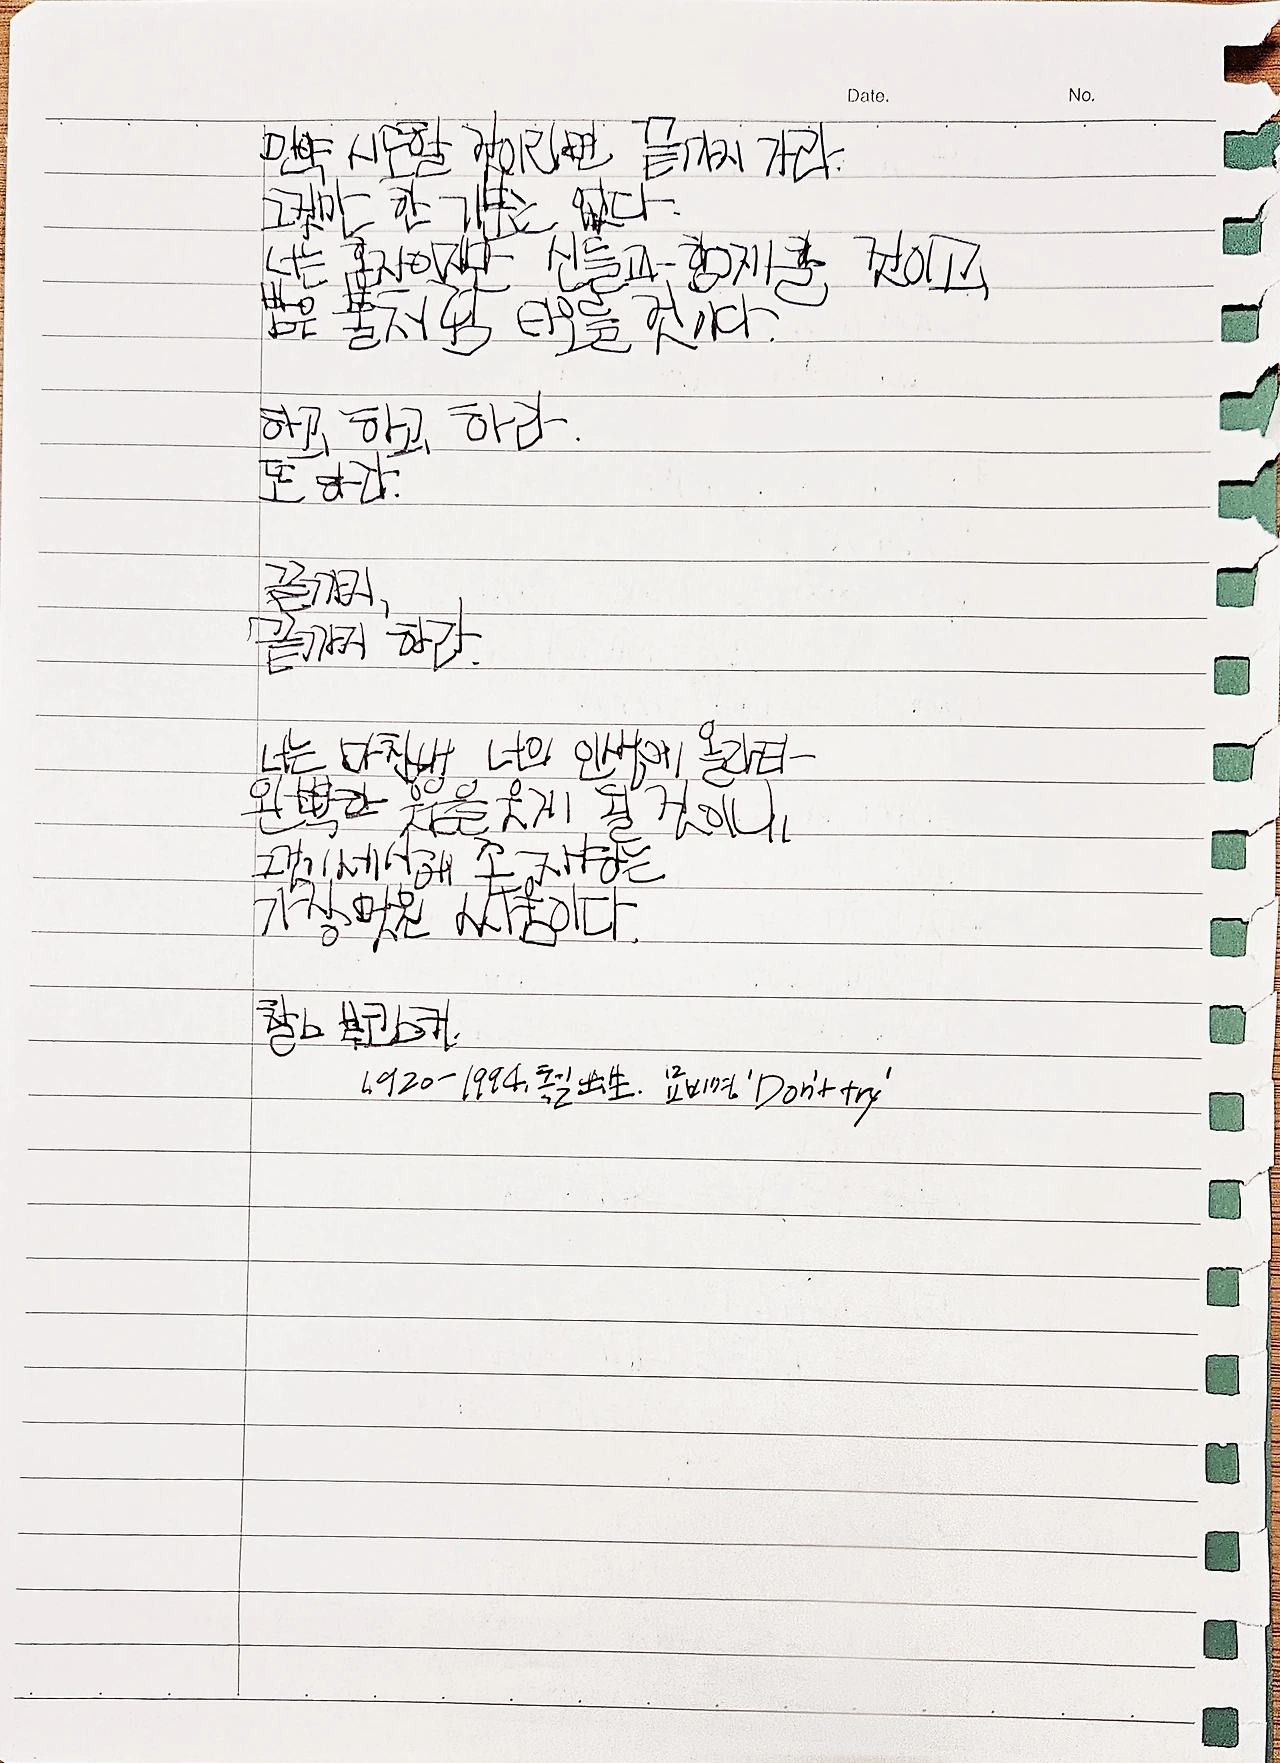 Date. No.
만약 시도할 것이라면 끝까지 가라.
그것만 한 기분은 없다.
너는 혼자이지만 신들과 함께할 것이고,
밤은 불처럼 타오를 것이다.
하고, 하고, 하라.
또 하라.
끝까지,
끝까지 하라.
너는 마침내 너의 인생에 올라타
완벽한 웃음을 웃게 될 것이니,
그것이 세상에 존재하는
가장 멋진 싸움이다.
찰스 부코스키.
1920-1994. 독일 出生. 묘비명 'Don't try'